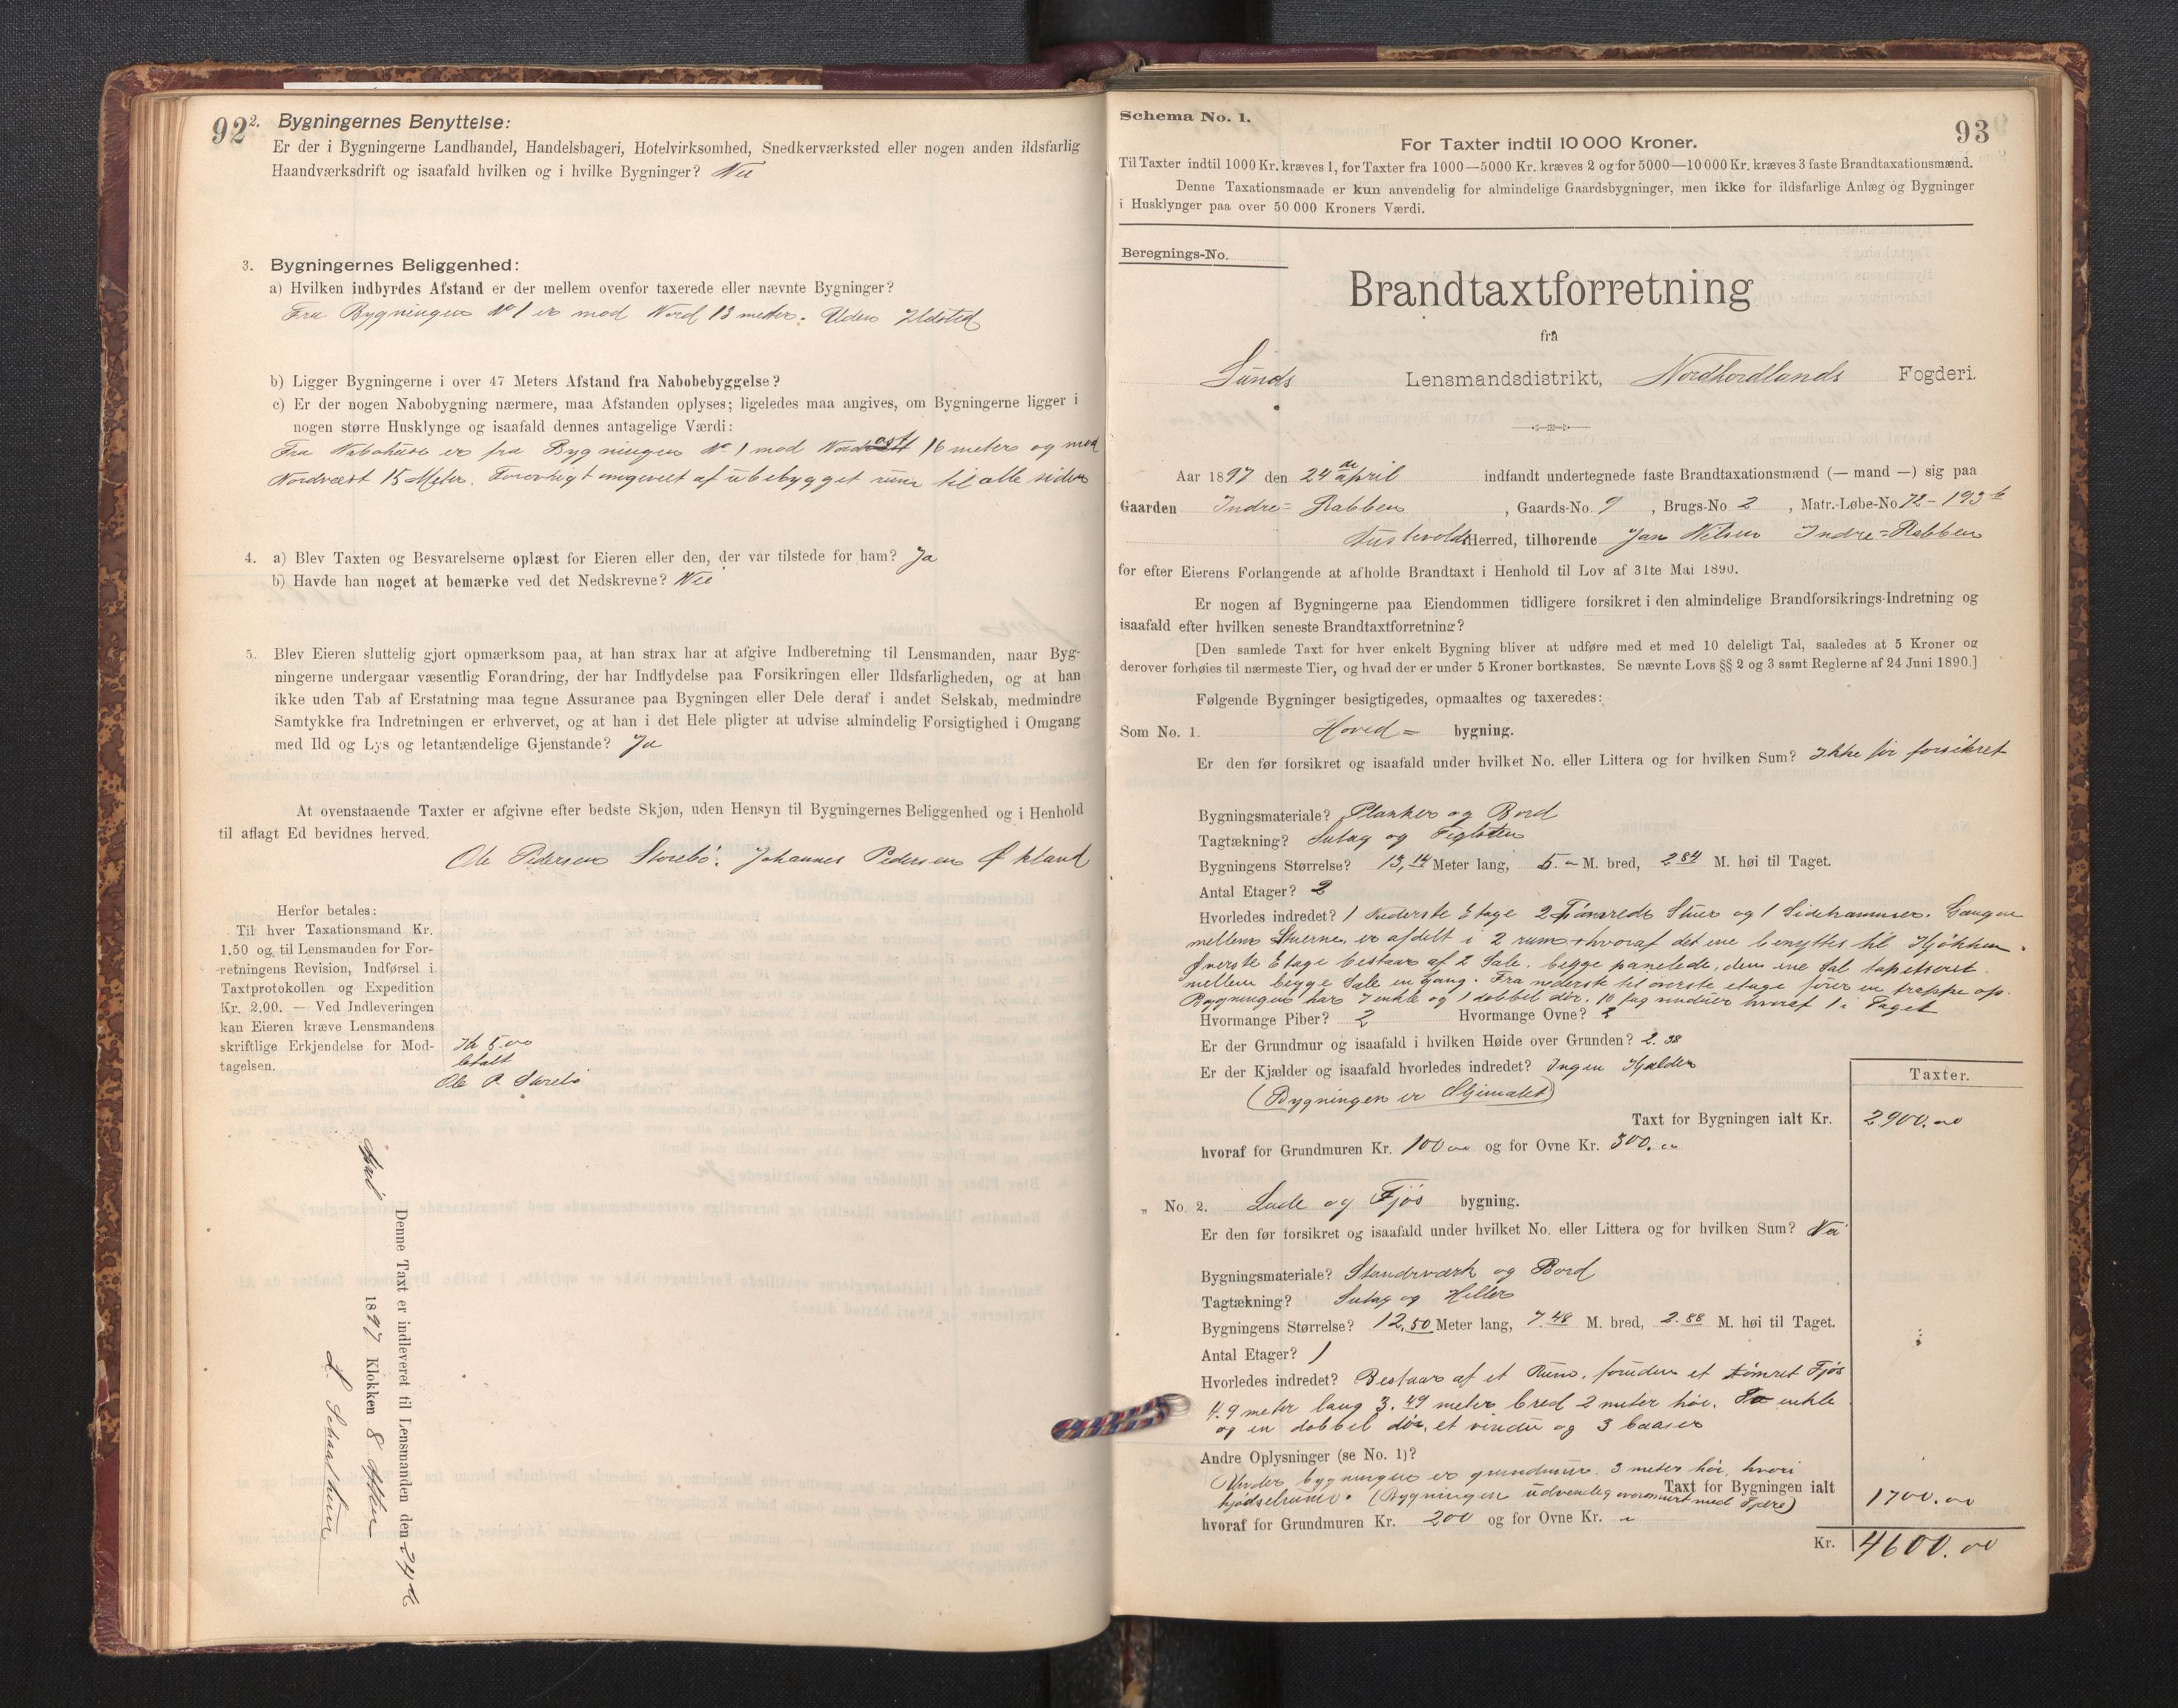 92
2. Bygningernes Benyttelse:
Er der i Bygningerne Landhandel, Handelsbageri, Hotelvirksomhed, Snedkerværksted eller nogen anden ildsfarlig
Haandværksdrift og isaafald hvilken og i hvilke Bygninger? Nei
3. Bygningernes Beliggenhed:
a) Hvilken indbyrdes Afstand er der mellem ovenfor taxerede eller nævnte Bygninger?
Fra Bygningen No 1 er mod Nord 13 meter. Uden Ildsted
b) Ligger Bygningerne i over 47 Meters Afstand fra Nabobebyggelse?
c) Er der nogen Nabobygning nærmere, maa Afstanden oplyses; ligeledes maa angives, om Bygningerne ligger i
nogen større Husklynge og isaafald dennes antagelige Værdi:
Fra Nabohuse er fra Bygningen No 1 mod 16 meter og mod
Nordvest 15 Meter. Forøvrigt omgivet af ubebygget rum til alle sider
4. a) Blev Taxten og Besvarelserne oplæst for Eieren eller den, der var tilstede for ham? Ja
b) Havde han noget at bemærke ved det Nedskrevne? Nei
5. Blev Eieren sluttelig gjort opmærksom paa, at han strax har at afgive Indberetning til Lensmanden, naar Byg-
ningerne undergaar væsentlig Forandring, der har Indflydelse paa Forsikringen eller Ildsfarligheden, og at han
ikke uden Tab af Erstatning maa tegne Assurance paa Bygningen eller Dele deraf i andet Selskab, medmindre
Samtykke fra Indretningen er erhvervet, og at han i det Hele pligter at udvise almindelig Forsigtighed i Omgang
med Ild og Lys og letantændelige Gjenstande? Ja
At ovenstaaende Taxter er afgivne efter bedste Skjøn, uden Hensyn til Bygningernes Beliggenhed og i Henhold
til aflagt Ed bevidnes herved.
Ole Pedersen Storebø. Johannes Pedersen Økland
Herfor betales:
Til hver Taxationsmand Kr.
1.50 og til Lensmanden for For-
retningens Revision, Indførsel i
Taxtprotokollen og Expedition
Kr. 2,00. — Ved Indleveringen
kan Eieren kræve Lensmandens
skriftlige Erkjendelse for Mod-
tagelsen.
Kr 5.00
betalt
Ole P. Storebø
Denne Taxt er indleveret til Lensmanden den 24de
April 1897 Klokken 8 Aften
93
Schema No. 1.
For Taxter indtil 10 000 Kroner.
Til Taxter indtil 1000 Kr. kræves 1, for Taxter fra 1000—5000 Kr. kræves 2 og for 5000—10 000 Kr. kræves 3 faste Brandtaxationsmænd.
Denne Taxationsmaade er kun anvendelig for almindelige Gaardsbygninger, men ikke for ildsfarlige Anlæg og Bygninger
i Husklynger paa over 50 000 Kroners Værdi.
Beregnings-No.
Brandtaxtforretning
fra
Sunds Lensmandsdistrikt, Nordhordlands Fogderi.
Aar 1897 den 24de April indfandt undertegnede faste Brandtaxationsmænd (— mand —) sig paa
Gaarden Indre= Rabben, Gaards-No. 9, Brugs-No. 2, Matr.-Løbe-No 72 - 193b
Austevolds Herred, tilhørende Jan Nilsen Indre=Rabben
for efter Eierens Forlangende at afholde Brandtaxt i Henhold til Lov af 31te Mai 1890.
Er nogen af Bygningerne paa Eiendommen tidligere forsikret i den almindelige Brandforsikrings-Indretning og
isaafald efter hvilken seneste Brandtaxtforretning?
[Den samlede Taxt for hver enkelt Bygning bliver at udføre med et med 10 deleligt Tal, saaledes at 5 Kroner og
derover forhøies til nærmeste Tier, og hvad der er under 5 Kroner bortkastes. Se nævnte Lovs §§ 2 og 3 samt Reglerne af 24 Juni 1890.]
Følgende Bygninger besigtigedes, opmaaltes og taxeredes:
Som No. 1. Hoved= bygning.
Er den før forsikret og isaafald under hvilket No. eller Littera og for hvilken Sum? Ikke før forsikret
Bygningsmateriale? Planker og Bord
Tagtækning? Sutag og Teglsten
Bygningens Størrelse? 13,14 Meter lang, 5.- M. bred, 2.84 M. høi til Taget.
Antal Etager? 2
Hvorledes indredet? I Nederste Etage 2 Stuer og 1 Sidekammer. Gangen
mellem Stuerne er afdelt i 2 rum hvoraf det ene benyttes til Kjøkken.
Øverste Etage bestaar af 2 Sale. begge panelede, den ene Sal tapetseret.
mellem begge Sale en Gang. Fra nederste til øverste etage fører en trappe op.
Bygningen har 7 enkle og 1 dobbel dør. 10 fag vinduer hvoraf 1 i Taget
Hvormange Piber? 2 Hvormange Ovne? 2
Er der Grundmur og isaafald i hvilken Høide over Grunden? 2.38
Er der Kjælder og isaafald hvorledes indredet? Ingen Kjælder
(Bygningen er Oljemalet)
Taxter.
Taxt for Bygningen ialt Kr. 2900.00
hvoraf for Grundmuren Kr. 100 00 og for Ovne Kr. 300. 00
„ No. 2. Lade og Fjøs bygning.
Er den før forsikret og isaafald under hvilket No. eller Littera og for hvilken Sum? Nei
Bygningsmateriale? Standværk og Bord
Tagtækning? Sutag og Heller
Bygningens Størrelse? 12.50 Meter lang, 7.48 M. bred, 2.88 M. høi til Taget.
Antal Etager? 1
Hvorledes indredet? Bestaar af et Rum, foruden et tømret Fjøs
4.9 meter lang 3.49 meter bred 2 meter høi. To enkle
og en dobbel dør, et vindu og 3 baaser
Andre Oplysninger (se No. 1)?
Under bygningen er grundmur 3 meter høi, hvori
gjødselrum. (Bygningen udvendig oversmurt med Tjære)
Taxt for Bygningen ialt 1700.00
hvoraf for Grundmuren Kr. 200 og for Ovne Kr. "
Kr. 4600.00